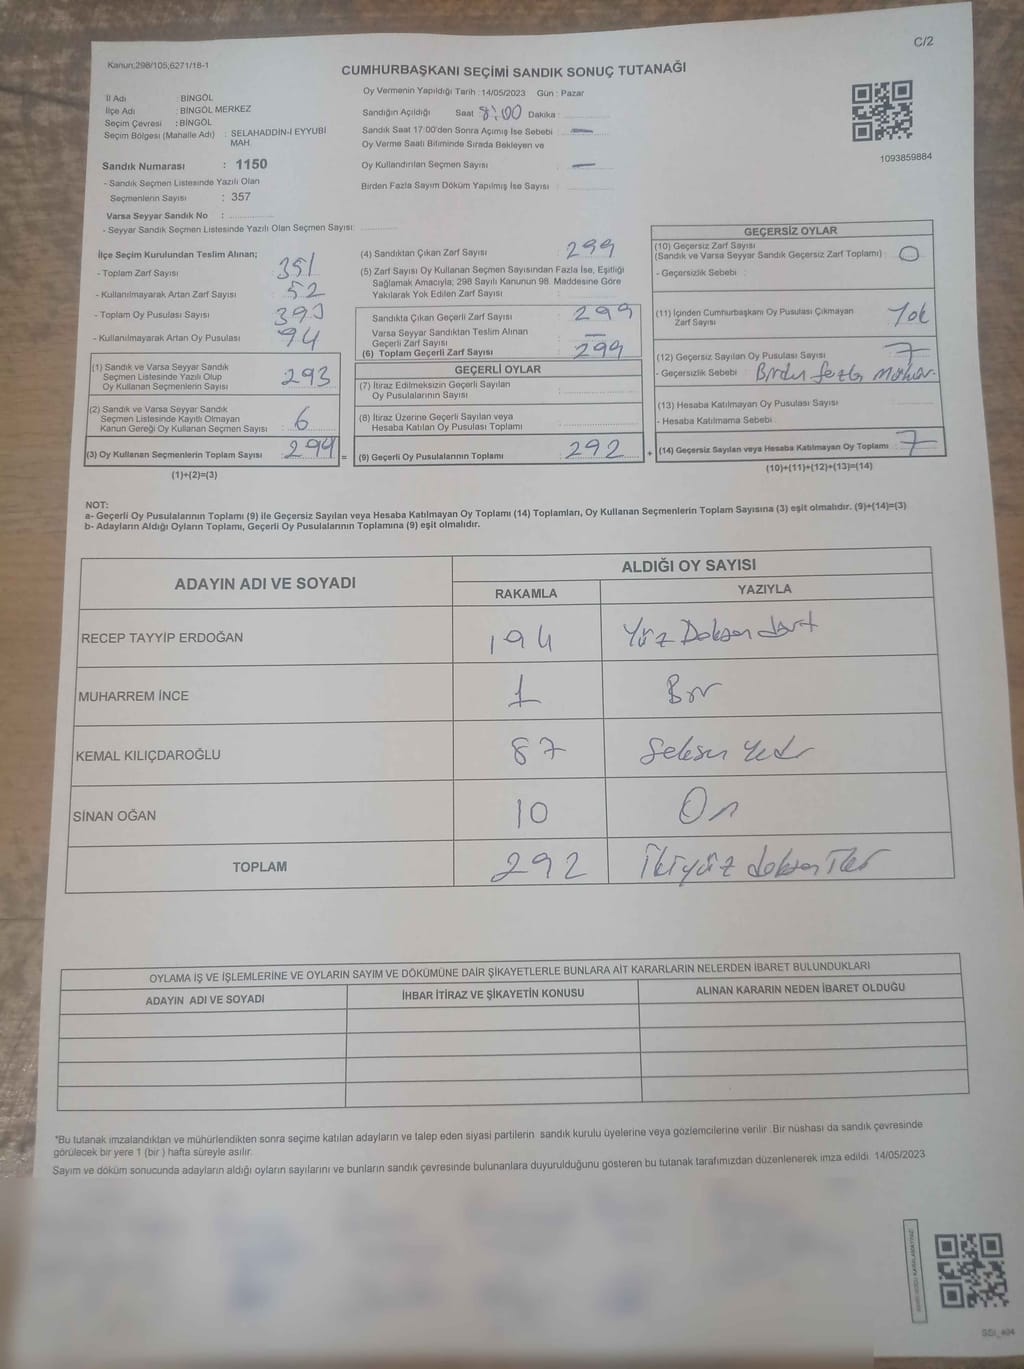 C/2
Kanun;298/105,6271/18-1
CUMHURBAŞKANI SEÇİMİ SANDIK SONUÇ TUTANAĞI
İl Adı : BİNGÖL
İlçe Adı : BİNGÖL MERKEZ
Seçim Çevresi : BİNGÖL
Seçim Bölgesi (Mahalle Adı) : SELAHADDİN-İ EYYUBİ
MAH.
Sandık Numarası : 1150
- Sandık Seçmen Listesinde Yazılı Olan
Seçmenlerin Sayısı : 357
Varsa Seyyar Sandık No :
- Seyyar Sandık Seçmen Listesinde Yazılı Olan Seçmen Sayısı:
Oy Vermenin Yapıldığı Tarih : 14/05/2023 Gün : Pazar
Sandığın Açıldığı Saat 8:00 Dakika :
Sandık Saat 17:00'den Sonra Açımış İse Sebebi : —
Oy Verme Saati Bitiminde Sırada Bekleyen ve
Oy Kullandırılan Seçmen Sayısı : —
Birden Fazla Sayım Döküm Yapılmış İse Sayısı :
1093859884
İlçe Seçim Kurulundan Teslim Alınan;
- Toplam Zarf Sayısı 351
- Kullanılmayarak Artan Zarf Sayısı : 52
- Toplam Oy Pusulası Sayısı
- Kullanılmayarak Artan Oy Pusulası : 94
(1) Sandık ve Varsa Seyyar Sandık
Seçmen Listesinde Yazılı Olup
Oy Kullanan Seçmenlerin Sayısı : 293
(2) Sandık ve Varsa Seyyar Sandık
Seçmen Listesinde Kayıtlı Olmayan
Kanun Gereği Oy Kullanan Seçmen Sayısı : 6
(3) Oy Kullanan Seçmenlerin Toplam Sayısı : =
(1)+(2)=(3)
(4) Sandıktan Çıkan Zarf Sayısı : 299
(5) Zarf Sayısı Oy Kullanan Seçmen Sayısından Fazla İse, Eşitliği
Sağlamak Amacıyla; 298 Sayılı Kanunun 98. Maddesine Göre
Yakılarak Yok Edilen Zarf Sayısı :
Sandıkta Çıkan Geçerli Zarf Sayısı : 299
Varsa Seyyar Sandıktan Teslim Alınan
Geçerli Zarf Sayısı : —
(6) Toplam Geçerli Zarf Sayısı : 299
GEÇERLİ OYLAR
(7) İtiraz Edilmeksizin Geçerli Sayılan
Oy Pusulalarının Sayısı :
(8) İtiraz Üzerine Geçerli Sayılan veya
Hesaba Katılan Oy Pusulası Toplamı :
(9) Geçerli Oy Pusulalarının Toplamı : 292 +
GEÇERSİZ OYLAR
(10) Geçersiz Zarf Sayısı
(Sandık ve Varsa Seyyar Sandık Geçersiz Zarf Toplamı) : 0
- Geçersizlik Sebebi :
(11) İçinden Cumhurbaşkanı Oy Pusulası Çıkmayan
Zarf Sayısı : Yok
(12) Geçersiz Sayılan Oy Pusulası Sayısı : 7
- Geçersizlik Sebebi : Birden fazla
(13) Hesaba Katılmayan Oy Pusulası Sayısı :
- Hesaba Katılmama Sebebi :
(14) Geçersiz Sayılan veya Hesaba Katılmayan Oy Toplamı : 7
(10)+(11)+(12)+(13)=(14)
NOT:
a- Geçerli Oy Pusulalarının Toplamı (9) ile Geçersiz Sayılan veya Hesaba Katılmayan Oy Toplamı (14) Toplamları, Oy Kullanan Seçmenlerin Toplam Sayısına (3) eşit olmalıdır. (9)+(14)=(3)
b- Adayların Aldığı Oyların Toplamı, Geçerli Oy Pusulalarının Toplamına (9) eşit olmalıdır.
ADAYIN ADI VE SOYADI ALDIĞI OY SAYISI
RAKAMLA YAZIYLA
RECEP TAYYİP ERDOĞAN 194 Yüz Doksan dört
MUHARREM İNCE 1 Bir
KEMAL KILIÇDAROĞLU 87 Seksen yedi
SİNAN OĞAN 10 On
TOPLAM 292 İkiyüz doksan iki
OYLAMA İŞ VE İŞLEMLERİNE VE OYLARIN SAYIM VE DÖKÜMÜNE DAİR ŞİKAYETLERLE BUNLARA AİT KARARLARIN NELERDEN İBARET BULUNDUKLARI
ADAYIN ADI VE SOYADI İHBAR İTİRAZ VE ŞİKAYETİN KONUSU ALINAN KARARIN NEDEN İBARET OLDUĞU
*Bu tutanak imzalandıktan ve mühürlendikten sonra seçime katılan adayların ve talep eden siyasi partilerin sandık kurulu üyelerine veya gözlemcilerine verilir. Bir nüshası da sandık çevresinde
görülecek bir yere 1 (bir) hafta süreyle asılır.
Sayım ve döküm sonucunda adayların aldığı oyların sayılarını ve bunların sandık çevresinde bulunanlara duyurulduğunu gösteren bu tutanak tarafımızdan düzenlenerek imza edildi. 14/05/2023